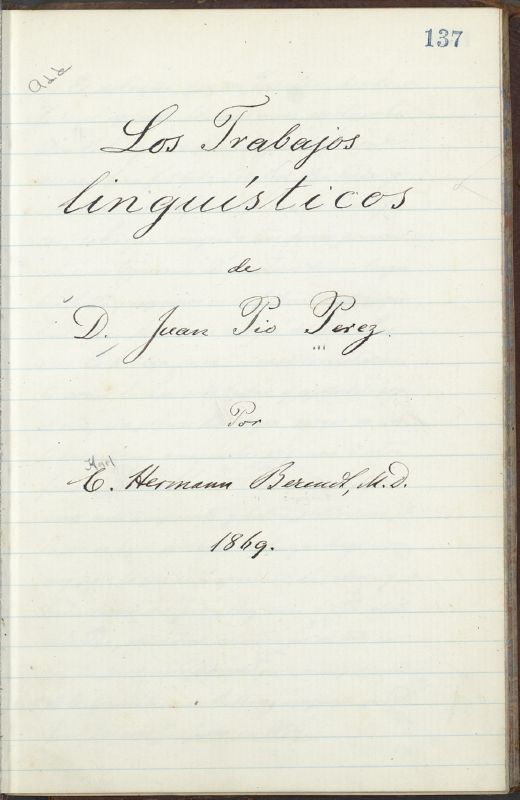 137
Add
Los Trabajos
linguísticos
de
D. Juan Pio Perez.
Por
Karl
C. Hermann Berendt, M.D.
1869.